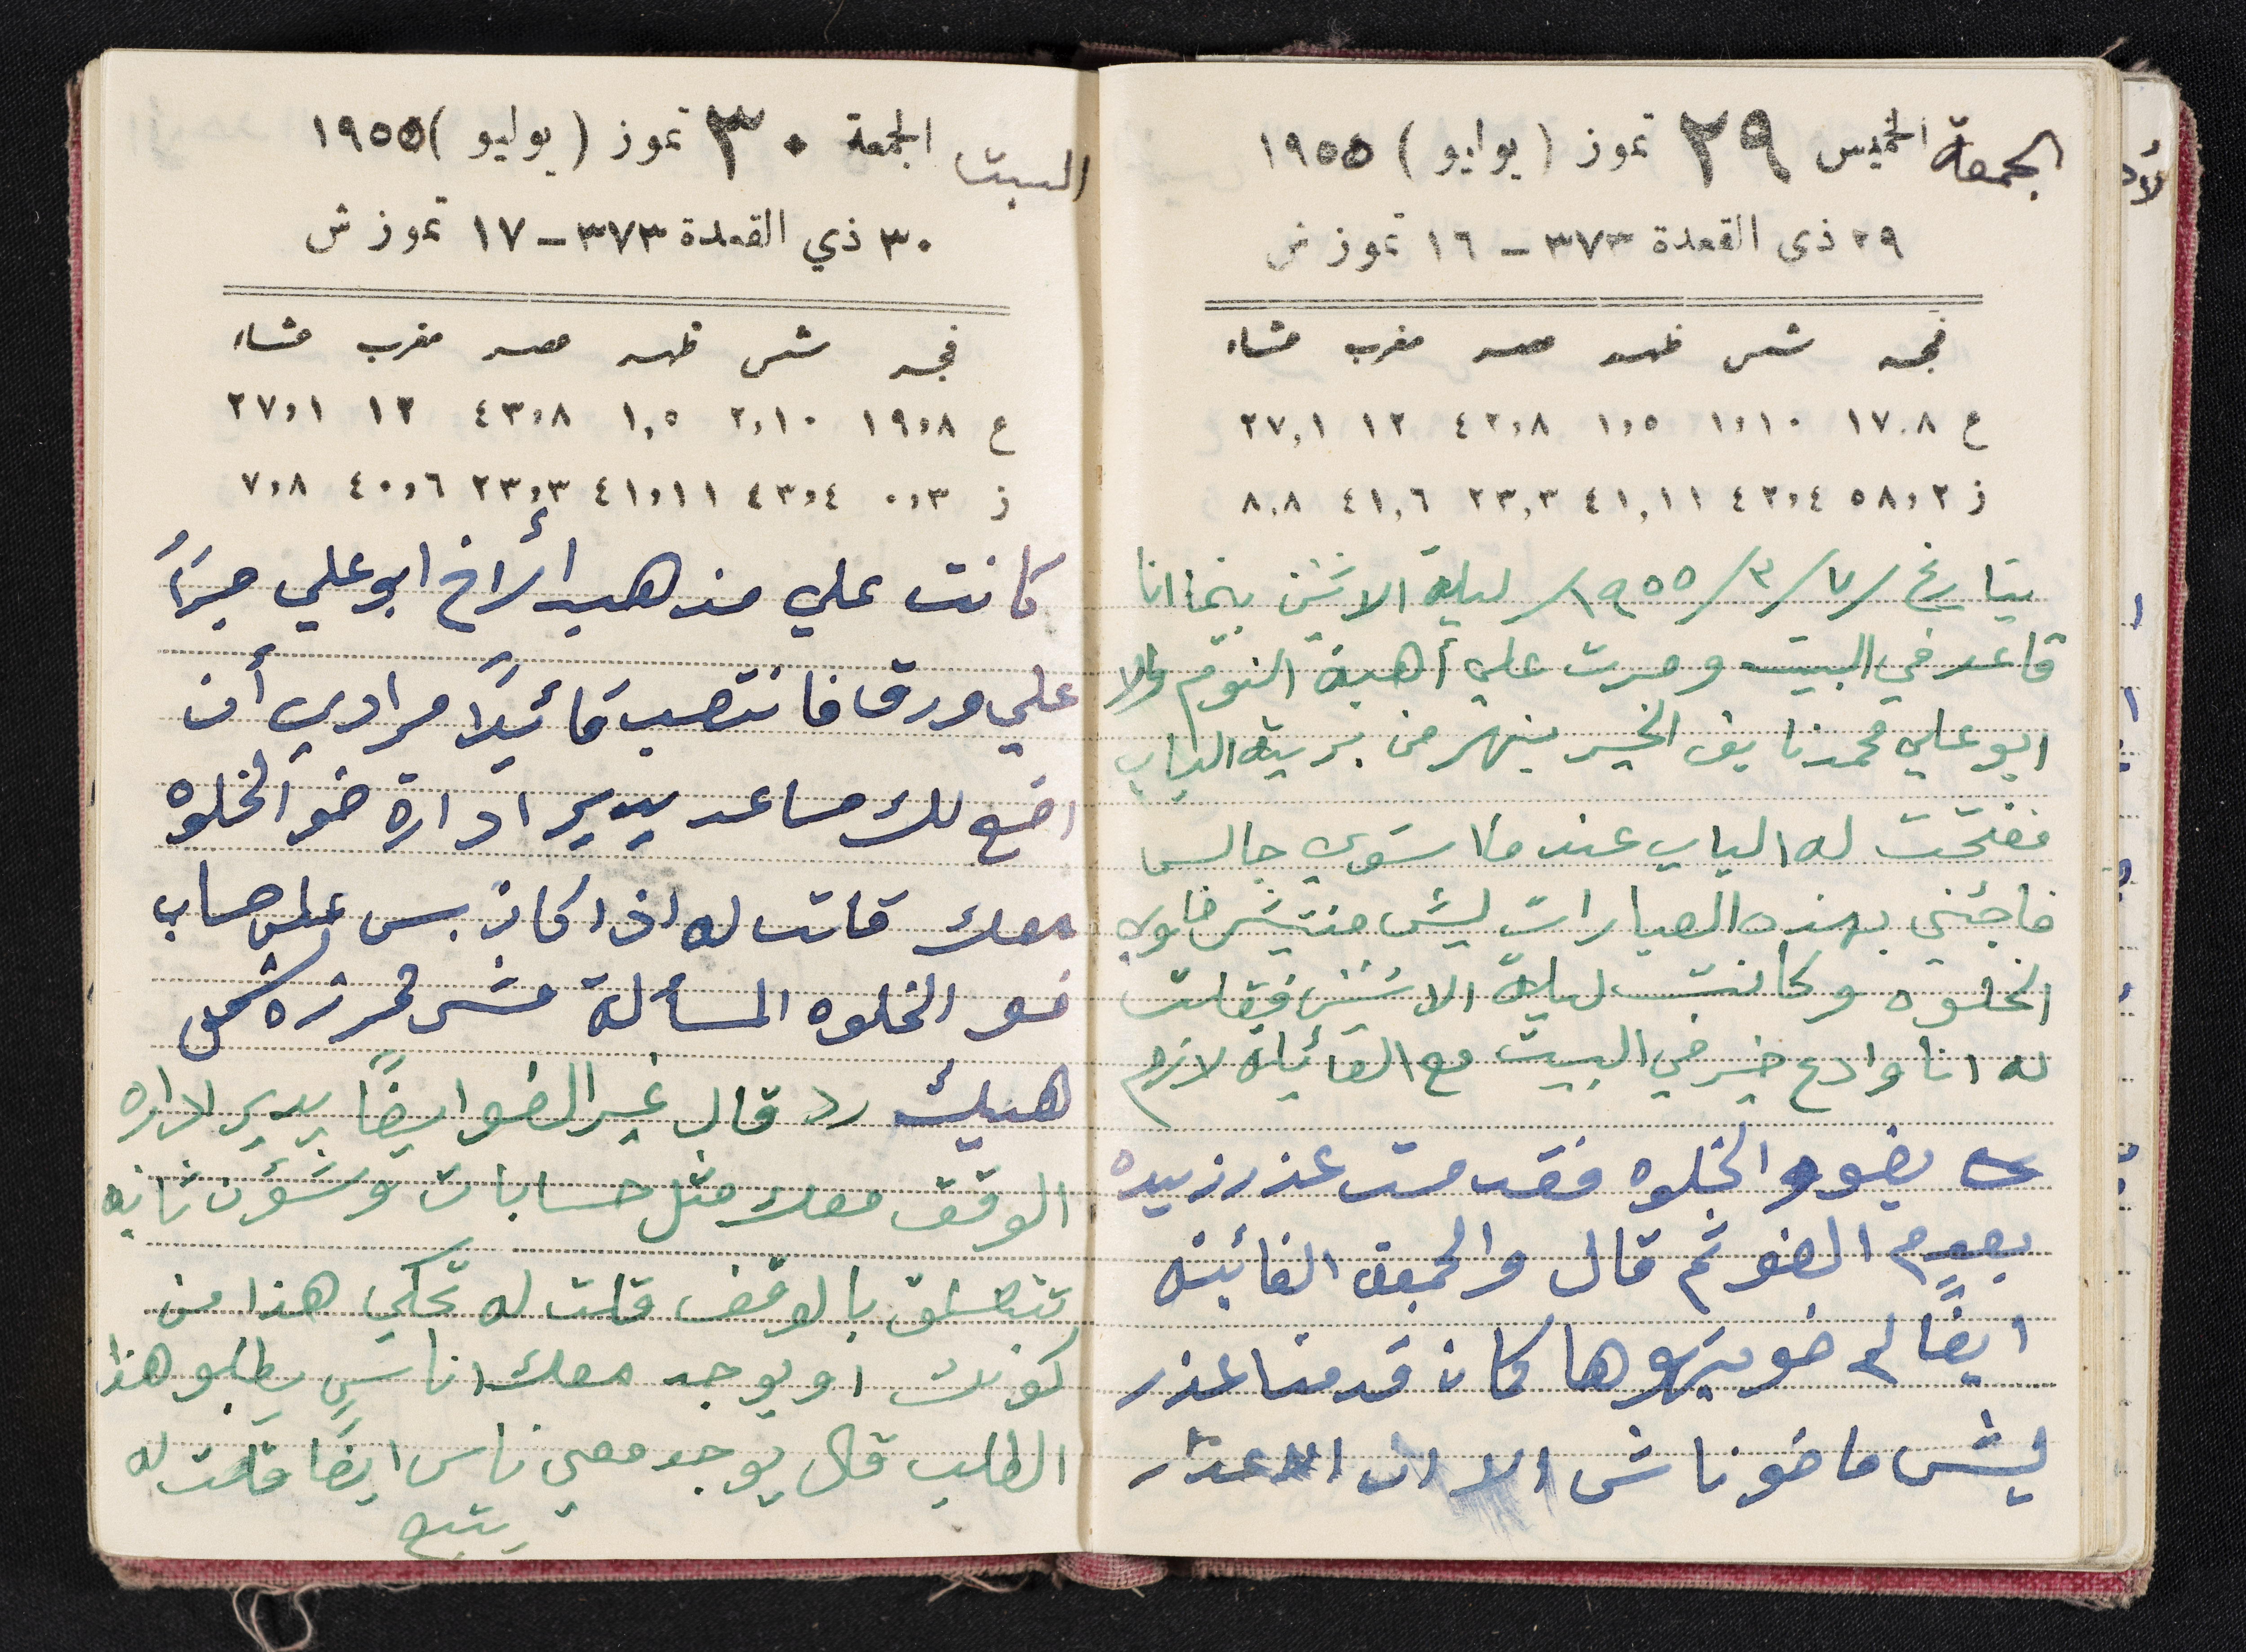 الجمعة الخميس ٢٩ تموز ( يوليو ) ١٩٥٥
٢٩ ذى القعدة ٣٧٣ - ١٦ تموز ش
فجر شمس ظهر عصر مغرب عشاء
ع ١٧٫٨ ١٫١٠ ١٫٥ ٤٢٫٨ ١٢ ٢٧٫١
ز ٥٨٫٢ ٤٢٫٤ ٤١٫١١ ٢٣٫٣ ٤١٫٦ ٨٫٨
بتاريخ /٧/٣/١٩٥٥/ ليلة الاثنين بينما انا
قاعد في البيت وصرت علي أهبة النوم والا
ابو علي محمد نايف الخير ينهر من برية الباب
ففتحت له الباب عندما استوى جالسا
فاجئني بهذه العبارات ليش منتيش ضاوي
الخلوه وكانت ليلة الاثنين فقلت
له انا وادع خير في البيت مع العائيلة لازم
يضوو الخلوه فقدمت عذر زييده
بعدم الضو ثم قال والجمعة الفائيته
ايضاً لم ضويتوها كان قدمنا عذر
ليش ما ضوناش الا ان الاعذار
البيت الجمعة ٣٠ تموز ( يوليو ) ١٩٥٥
٣٠ ذي القعدة ٣٧٣ - ١٧ تموز ش
فجر شمس ظهر عصر مغرب عشاء
ع ١٩٫٨ ٢٫١٠ ١٫٥ ٤٣٫٨ ١٢ ٢٧٫١
ز ٠٫٣ ٤٣٫٤ ٤١٫١١ ٢٣٫٣ ٤٠٫٦ ٧٫٨
كانت علي مذهب الأراخ ابو علي حبرًا
علي ورق فانتصب قائيلاً مرادي أن
اضع لك مساعد يدير ادارة ضو الخلوه
معك قلت له اذا كان بس على حساب
ضو الخلوه المسألة مش محرزه شي
هيك رد قال غير الضو ايضاً يدير اداره
الوقف معك مثل حسابات وشؤن ثانيه
تتعلق بالوقف قلت له تحكي هذا من
كونك او يوجد معك اناس يطلبو هذا
الطلب قال يوجد معي ناس ايضا قلت له
يتبع